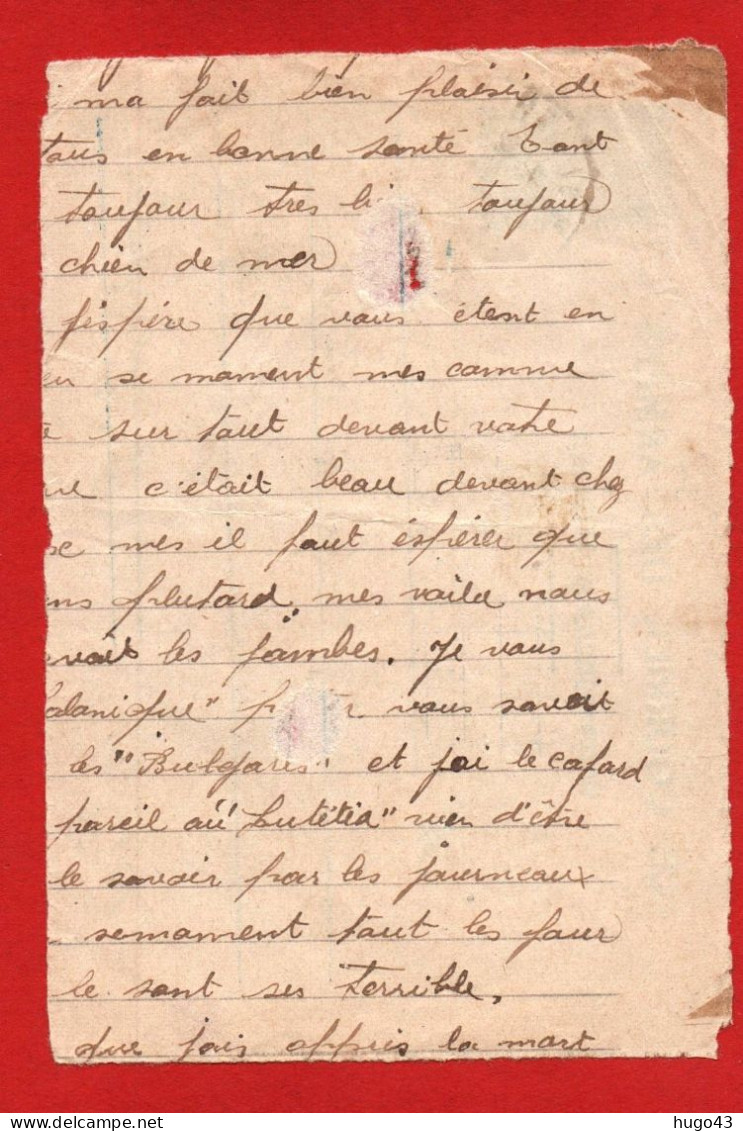 ma fait bien plaisir de
tous en bonne santé tant
toujour tres toujour
chien de mer
j'éspére que vous étent en
se moment mes comme
sur tout devant votre
c'était beau devant chez
mes il faut éspérer que
plutard mes voila nous
les jambes. Je vous
vous savoir
les "Bulgares" et j'ai le cafard
pareil au "Lutétia" rien d'être
le savoir par les journeaux
semoment tout les jour
le sont ses terrible.
que jais appris la mort
hugo43